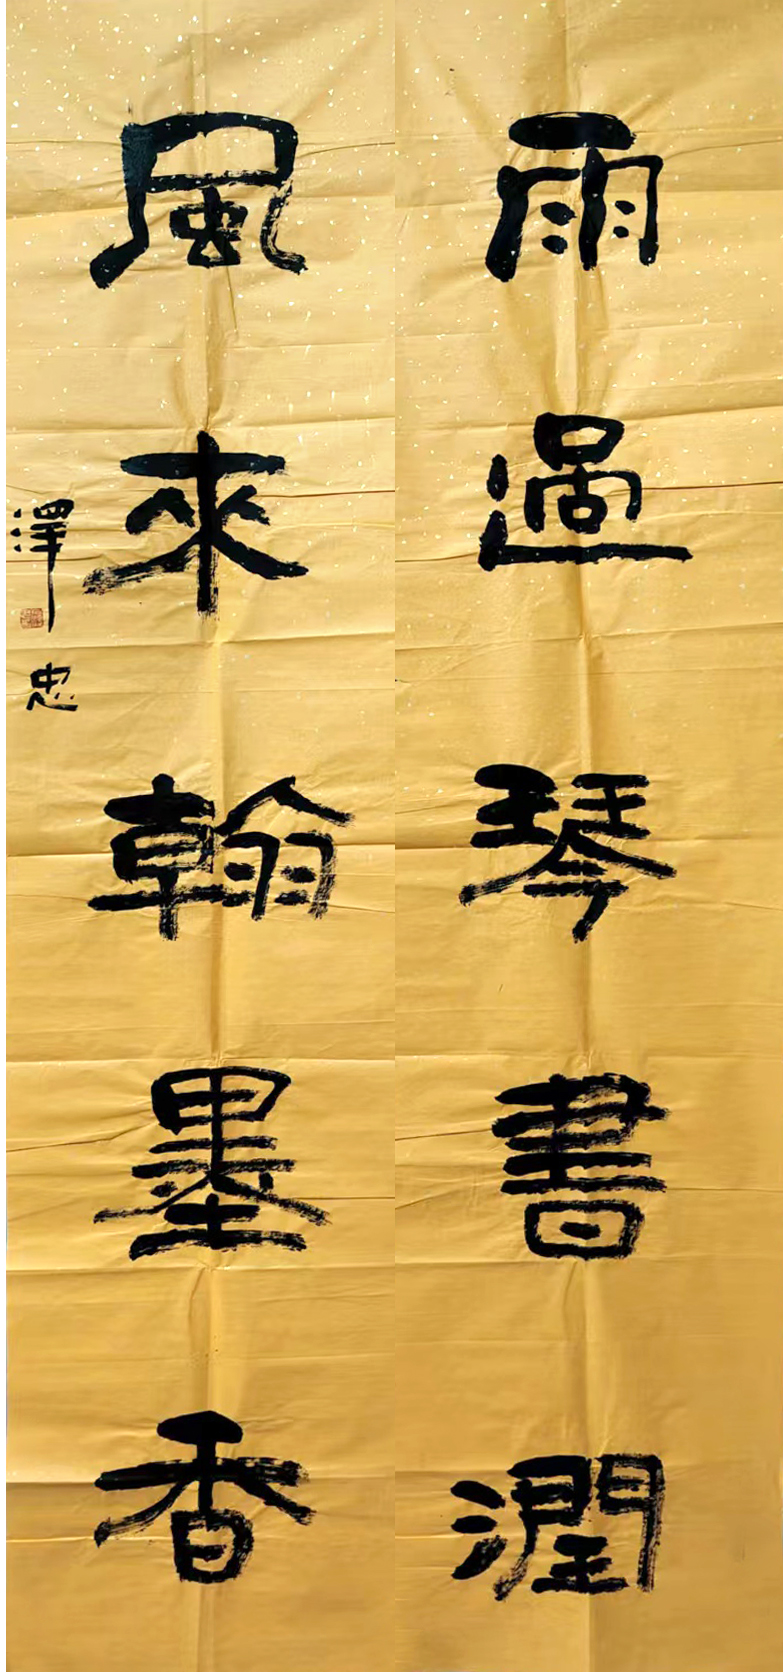 雨過琴書潤
風來翰墨香
澤忠